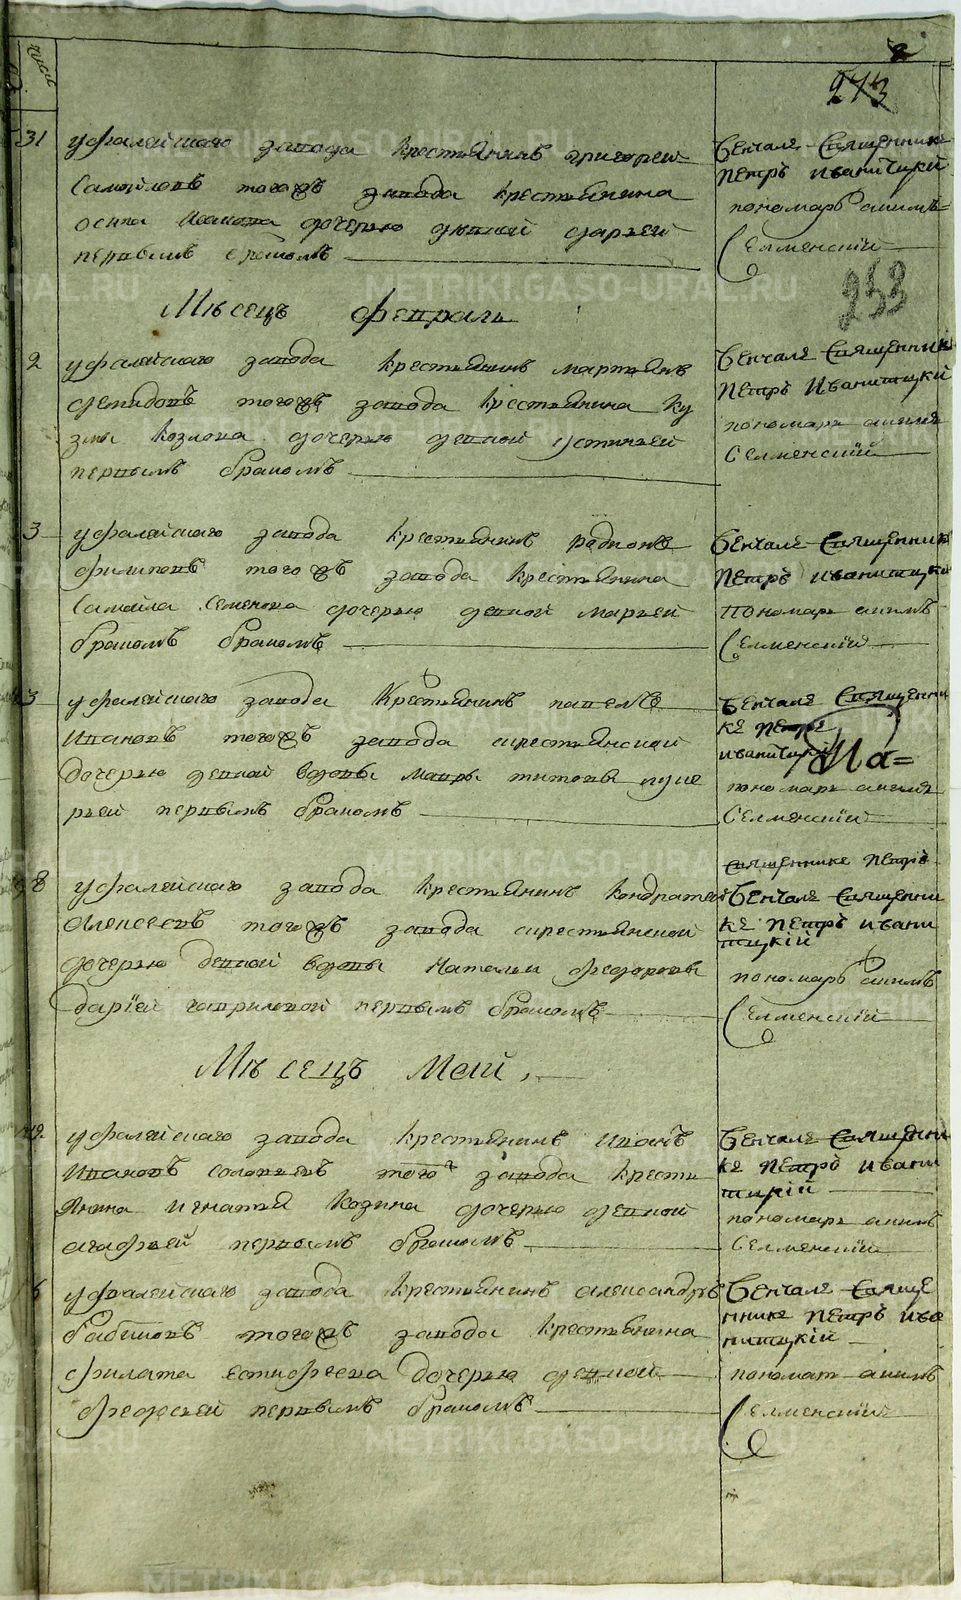 число
2
273
31
уфалейского завода крестьянинъ григорей
Самойловъ тогожъ завода крестьянина
осипа дочерью девкой дарьей
первымъ бракомъ
Венчале Священникъ
Петръ Иваницкий
пономарь акимъ
Селменский
253
Месецъ февраль
2
уфалейского завода крестьянинъ мартынъ
демидовъ тогожъ завода крестьянина ку
змы козлова дочерью девкой устиньей
первымъ бракомъ
Венчале Священникъ
Петръ Иваницкий
пономарь акимъ
Селменский
3
уфалейского завода крестьянинъ радионъ
филиповъ тогожъ завода крестьянина
Самойла Семенова дочерью девкой марьей
бракомъ бракомъ
Венчале Священникъ
Петръ Иваницкий
пономарь акимъ
Селменский
3
уфалейского завода крестьянинъ павелъ
Ивановъ тогожъ завода крестьянской
дочерью девкой вдовы мавры титовы луке
рьей первымъ бракомъ
Венчале Священни
къ Петръ
иваницкий
Ма=
пономарь акимъ
Селменский
8
уфалейского завода крестьянинъ кондратей
Алексеевъ тогожъ завода крестьянской
дочерью девкой вдовы Натальи федоровы
дарїей гавриловой первымъ бракомъ
священникъ Петръ
Венчале Священни
къ Петръ ивани
цкїй
пономарь акимъ
Селменский
Месецъ Май
19.
уфалейского завода крестьянинъ иванъ
Ивановъ тогожъ завода крести
янина игнатия козина дочерью девкой
агафьей первымъ бракомъ
Венчале Священни
къ Петръ ивани
цкїй
пономарь акимъ
Селменский
уфалейского завода крестьянинъ александръ
бабиковъ тогожъ завода крестьянина
филата естифеева дочерью девкой
федосьей первымъ бракомъ
Венчале Свяще
нникъ Петръ ива
ницкїй
пономарь акимъ
Селменский